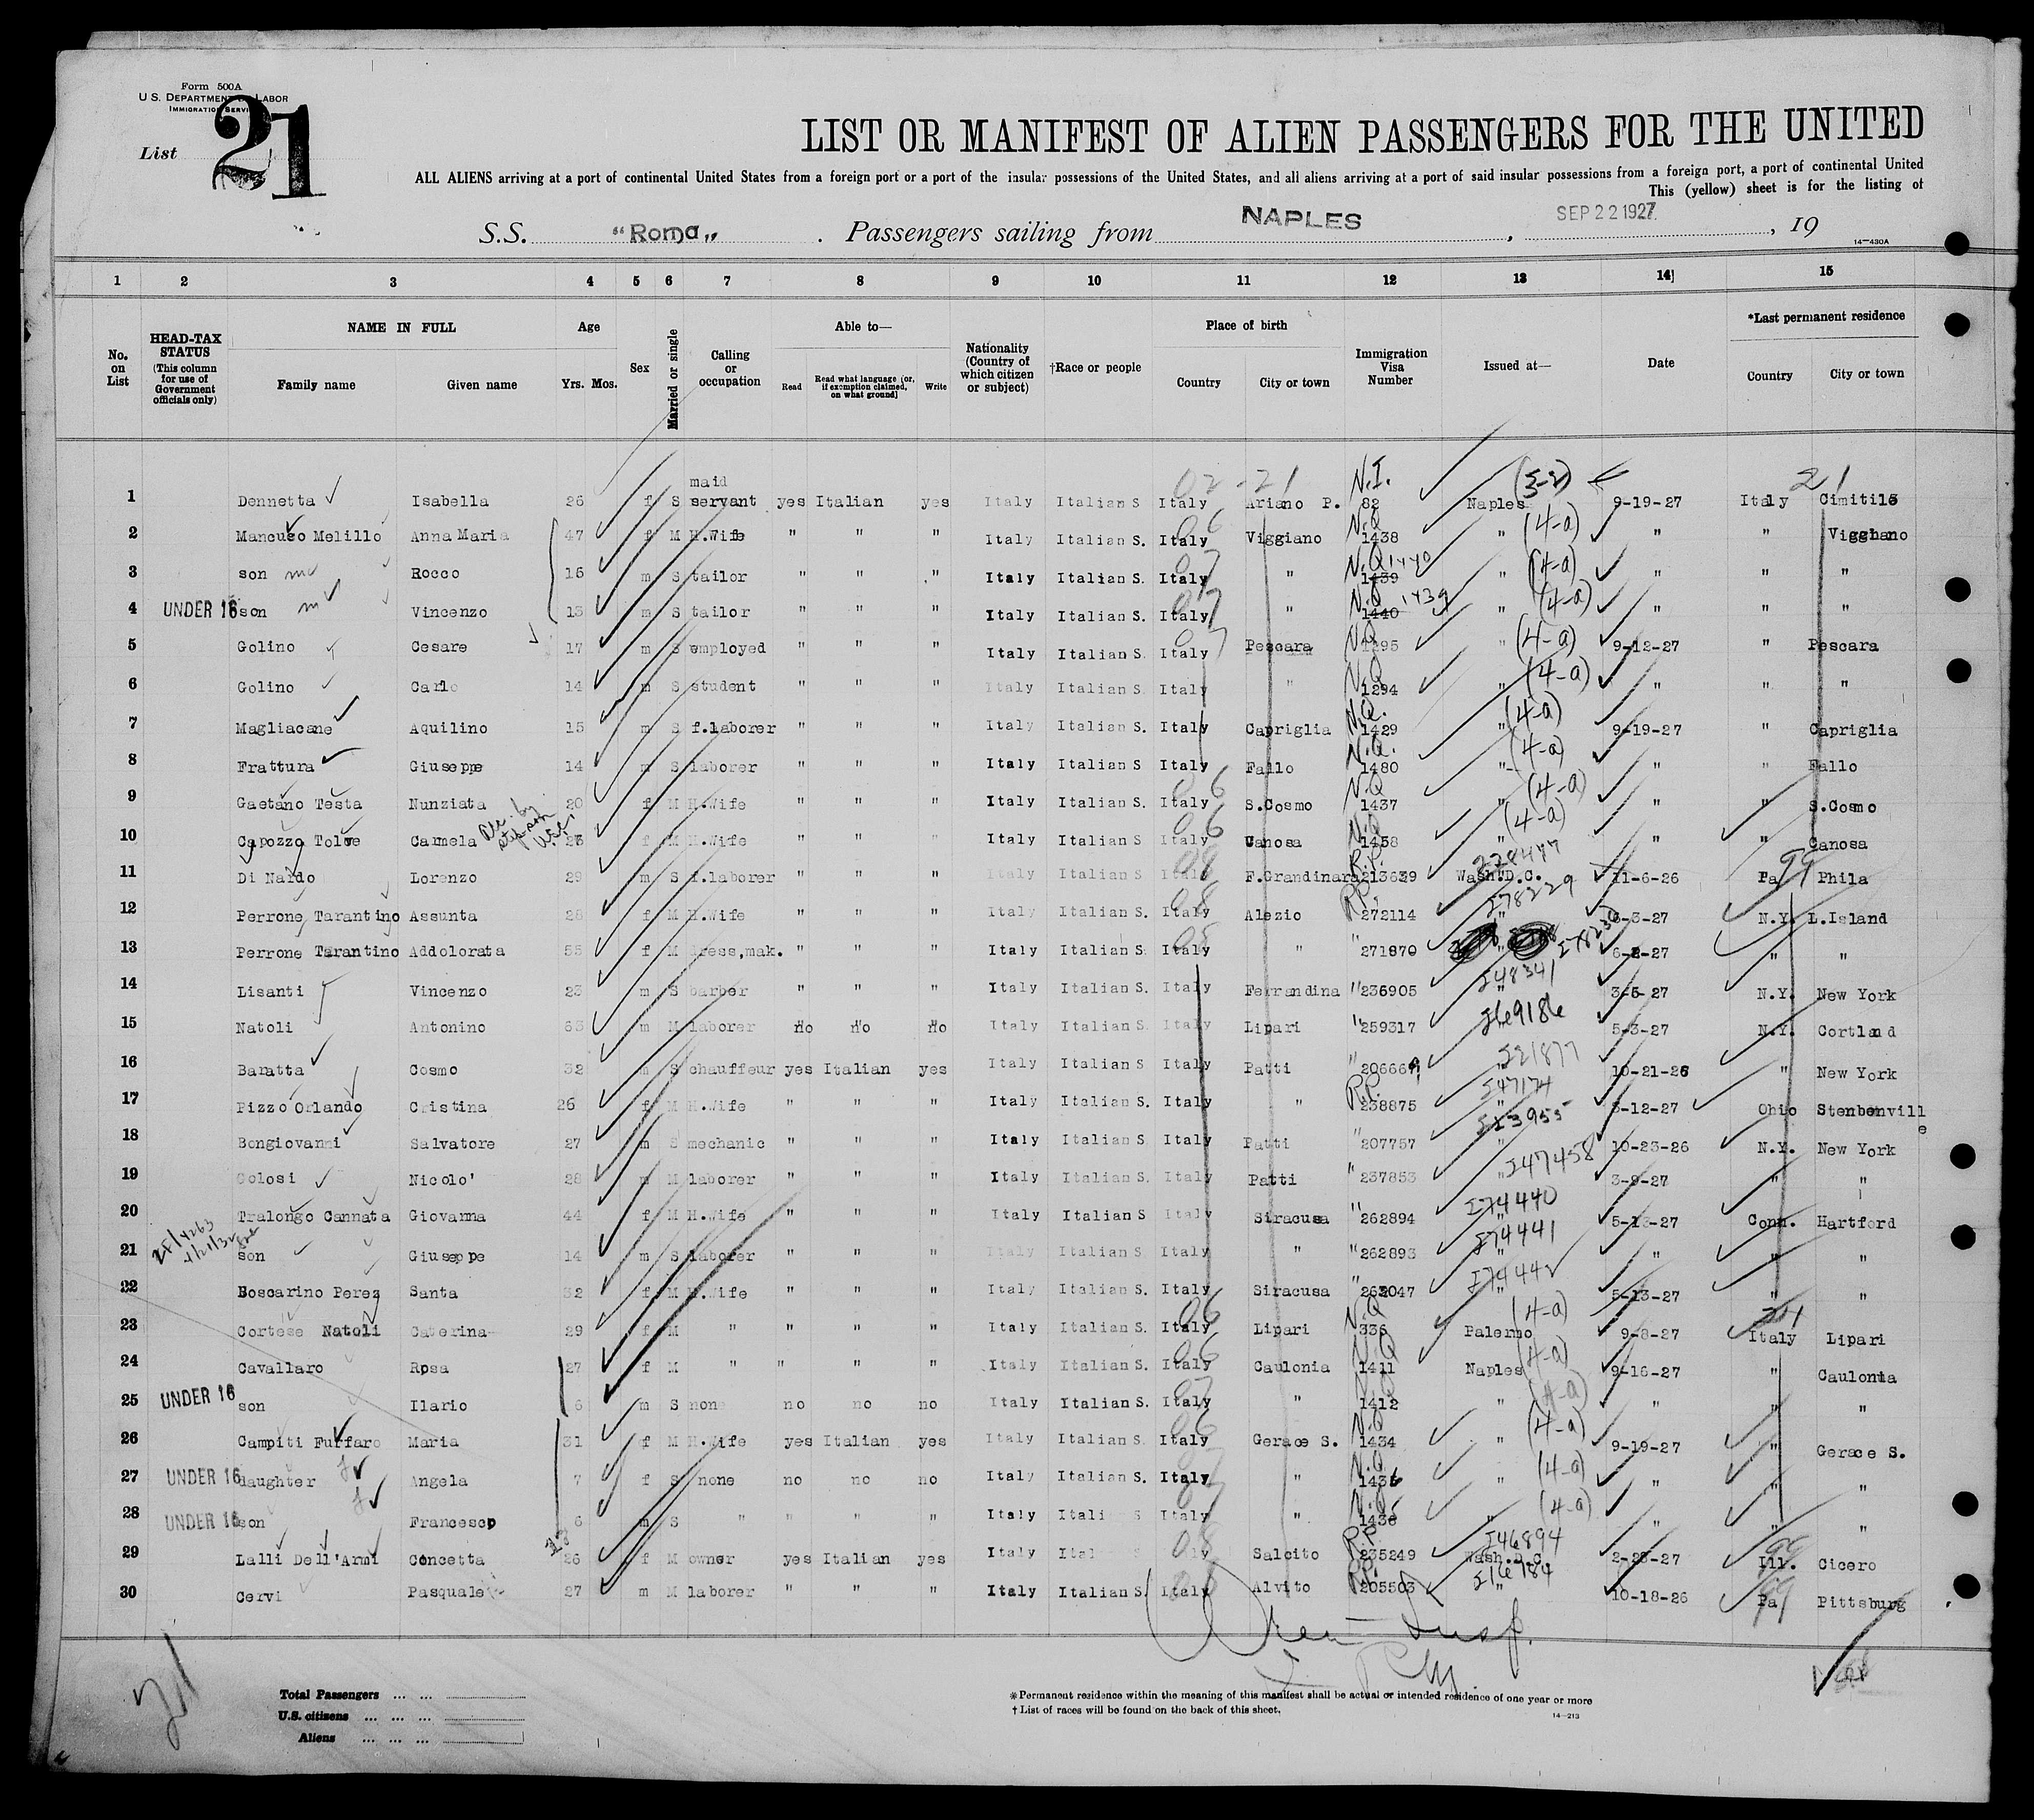 Form 500A
U.S. DEPARTMENT OF LABOR
IMMIGRATION SERVICE
List 21
LIST OR MANIFEST OF ALIEN PASSENGERS FOR THE UNITED
ALL ALIENS arriving at a port of continental United States from a foreign port or a port of the insular possessions of the United States, and all aliens arriving at a port of said insular possessions from a foreign port, a port of continental United
This (yellow) sheet is for the listing of
S.S. "Roma". Passengers sailing from NAPLES, SEP 22 1927, 19
14—430A
1 2 3 4 5 6 7 8 9 10 11 12 13 14 15
No. on List
HEAD-TAX STATUS (This column for use of Government officials only)
NAME IN FULL Family name Given name
Age Yrs. Mos.
Sex
Married or single
Calling or occupation
Able to— Read Read what language (or, if exemption claimed, on what ground) Write
Nationality (Country of which citizen or subject)
†Race or people
Place of birth Country City or town
Immigration Visa Number
Issued at—
Date
*Last permanent residence Country City or town
02-21 21
1 Dennetta Isabella 26 f S maid servant yes Italian yes Italy Italian S Italy Ariano P. N.I. 82 Naples 9-19-27 Italy Cimitile
2 Mancuso Melillo Anna Maria 47 f M H.Wife " " " Italy Italian S. Italy 06 Viggiano N.Q 1438 " (4-a) " " Viggiano
3 son Rocco 16 m S tailor " " " Italy Italian S. Italy 07 " N.Q 1439 1440 " (4-a) " " "
4 UNDER 16 son Vincenzo 13 m S tailor " " " Italy Italian S. Italy 07 " N.Q 1440 1439 " (4-a) " " "
5 Golino Cesare 17 m S employed " " " Italy Italian S. Italy 07 Pescara N.Q 1295 " (4-a) 9-12-27 " Pescara
6 Golino Carlo 14 m S student " " " Italy Italian S. Italy " N.Q 1294 " (4-a) " " "
7 Magliacane Aquilino 15 m S f.laborer " " " Italy Italian S. Italy Capriglia N.Q. 1429 " (4-a) 9-19-27 " Capriglia
8 Frattura Giuseppe 14 m S laborer " " " Italy Italian S Italy Fallo N.Q. 1480 " (4-a) " " Fallo
9 Gaetano Testa Nunziata 20 f M H.Wife " " " Italy Italian S. Italy 06 S.Cosmo N.Q 1437 " (4-a) " " S.Cosmo
10 Capozzo Tolve Carmela f M H.Wife " " " Italy Italian S. Italy 06 Canosa N.Q 1458 " (4-a) " " Canosa
11 Di Nardo Lorenzo 29 m S f.laborer " " " Italy Italian S. Italy 08 F.Grandinara R.P. 213639 Wash.D.C. 11-6-26 Pa 99 Phila
12 Perrone Tarantino Assunta 28 f M H.Wife " " " Italy Italian S. Italy 08 Alezio R.P. 272114 " 278229 6-3-27 N.Y. L.Island
13 Perrone Tarantino Addolorata 55 f M dress,mak. " " " Italy Italian S. Italy " " 271870 " 6-2-27 " "
14 Lisanti Vincenzo 23 m S barber " " " Italy Italian S. Italy Ferrandina " 236905 " 248341 3-5-27 N.Y. New York
15 Natoli Antonino 63 m M laborer no no no Italy Italian S. Italy Lipari " 259317 " 269186 5-3-27 N.Y. Cortland
16 Baratta Cosmo 32 m S chauffeur yes Italian yes Italy Italian S. Italy Patti " 206669 " 221877 10-21-26 " New York
17 Pizzo Orlando Cristina 26 f M H.Wife " " " Italy Italian S. Italy " R.P. 238875 " 247174 3-12-27 Ohio Stenbenville
18 Bongiovanni Salvatore 27 m S mechanic " " " Italy Italian S. Italy Patti " 207757 " 213955 10-23-26 N.Y. New York
19 Colosi Nicolo' 28 m M laborer " " " Italy Italian S. Italy Patti " 237853 " 247458 3-9-27 " "
20 Tralongo Cannata Giovanna 44 f M H.Wife " " " Italy Italian S Italy Siracusa " 262894 " 274440 5-13-27 Conn. Hartford
21 son Giuseppe 14 m S laborer " " " Italy Italian S. Italy " " 262893 " 274441 " " "
22 Boscarino Perez Santa 32 f M H.Wife " " " Italy Italian S. Italy Siracusa " " 5-13-27 " "
23 Cortese Natoli Caterina 29 f M " " " " Italy Italian S. Italy 06 Lipari N.Q 336 Palermo (4-a) 9-8-27 Italy Lipari
24 Cavallaro Rosa 27 f M " " " " Italy Italian S. Italy 06 Caulonia N.Q 1411 Naples (4-a) 9-16-27 " Caulonia
25 UNDER 16 son Ilario 6 m S none no no no Italy Italian S. Italy 07 " N.Q 1412 " (4-a) " " "
26 Campiti Furfaro Maria 31 f M H.Wife yes Italian yes Italy Italian S. Italy 06 Gerace S. N.Q 1434 " (4-a) 9-19-27 " Gerace S.
27 UNDER 16 daughter Angela 7 f S none no no no Italy Italian S. Italy 07 " N.Q 1435 " (4-a) " " "
28 UNDER 16 son Francesco 6 m S " " " " Italy Itali S Italy 07 " N.Q 1436 " (4-a) " " "
29 Lalli Dell'Armi Concetta 26 f M owner yes Italian yes Italy Italy 08 Salcito R.P. 235249 Wash.D.C. 246894 2-28-27 Ill. 99 Cicero
30 Cervi Pasquale 27 m M laborer " " " Italy Italian S. Italy Alvito R.P. 205503 " 10-18-26 Pa 99 Pittsburg
21
Total Passengers ... ...
U.S. citizens ... ... ...
Aliens ... ... ...
*Permanent residence within the meaning of this manifest shall be actual or intended residence of one year or more
†List of races will be found on the back of this sheet.
14—213